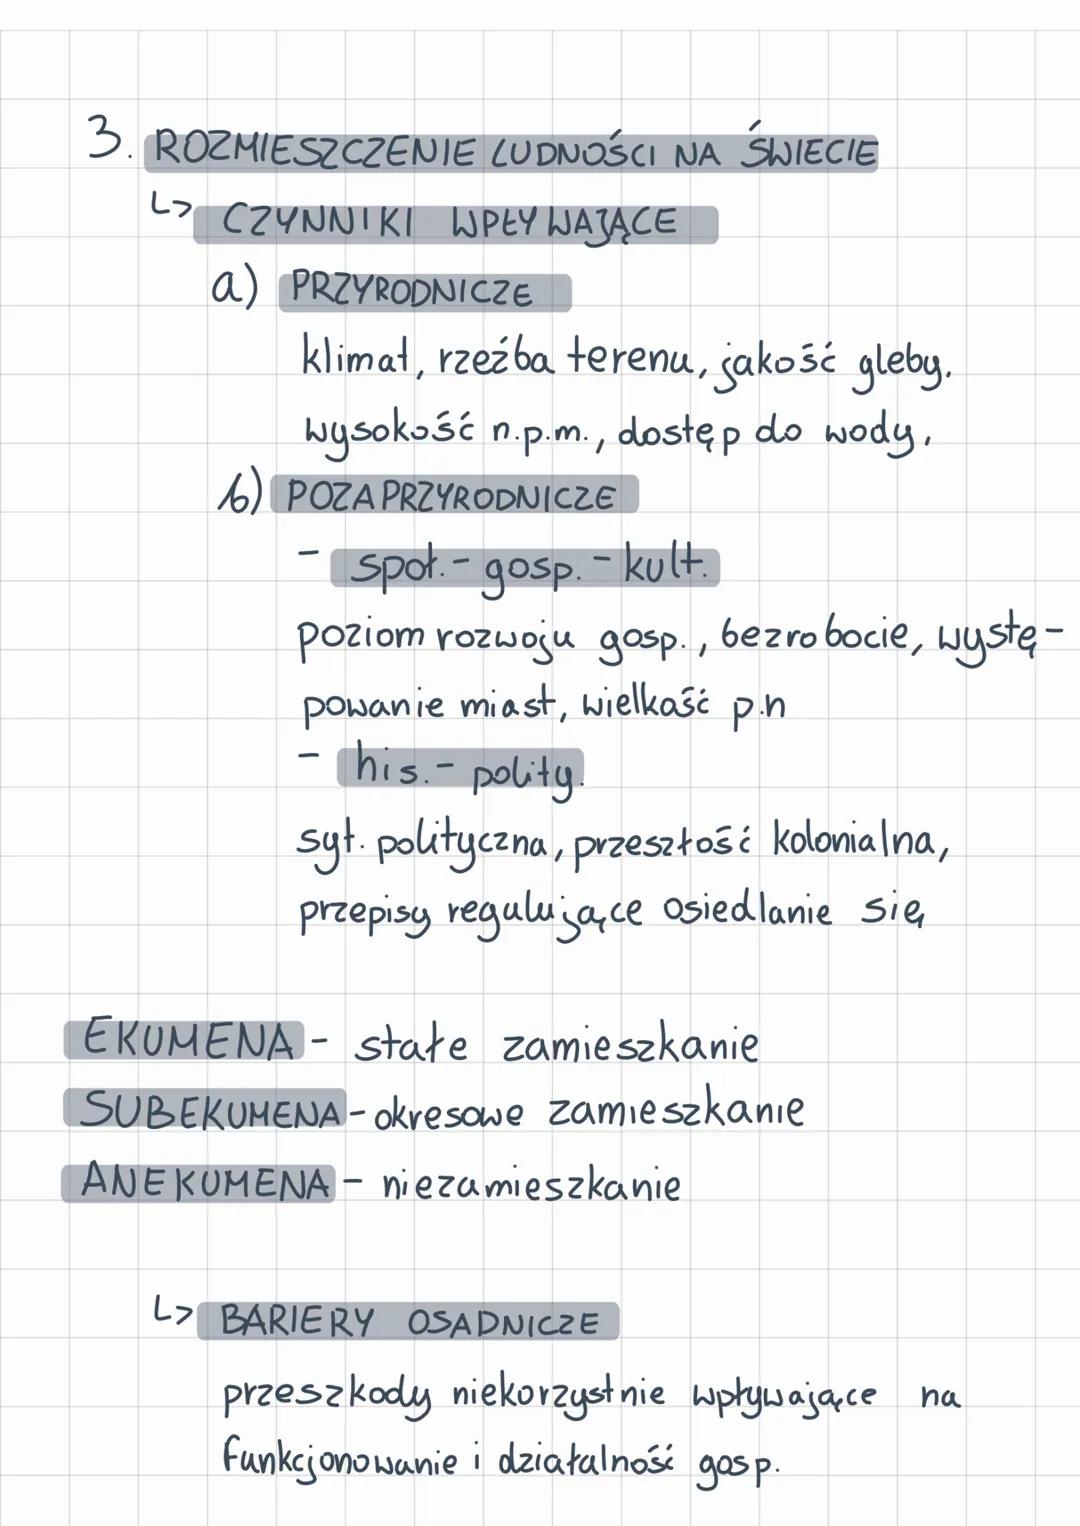 3. ROZMIESZCZENIE LUDNOŚCI NA ŚWIECIE
↳ CZYNNIKI WPŁYWAJĄCE
a) PRZYRODNICZE
klimat, rzeźba terenu, jakość gleby,
wysokość n.p.m., dostęp do wody,
b) POZAPRZYRODNICZE
- społ.-gosp.-kult.
poziom rozwoju gosp., bezrobocie, wystę-
powanie miast, wielkość p.n
- his.-polity.
syt. polityczna, przeszłość kolonialna,
przepisy regulujące osiedlanie się
EKUMENA - stałe zamieszkanie
SUBEKUMENA - okresowe zamieszkanie
ANEKUMENA - niezamieszkanie
↳ BARIERY OSADNICZE
przeszkody niekorzystnie wpływające na
funkcjonowanie i działalność gosp.